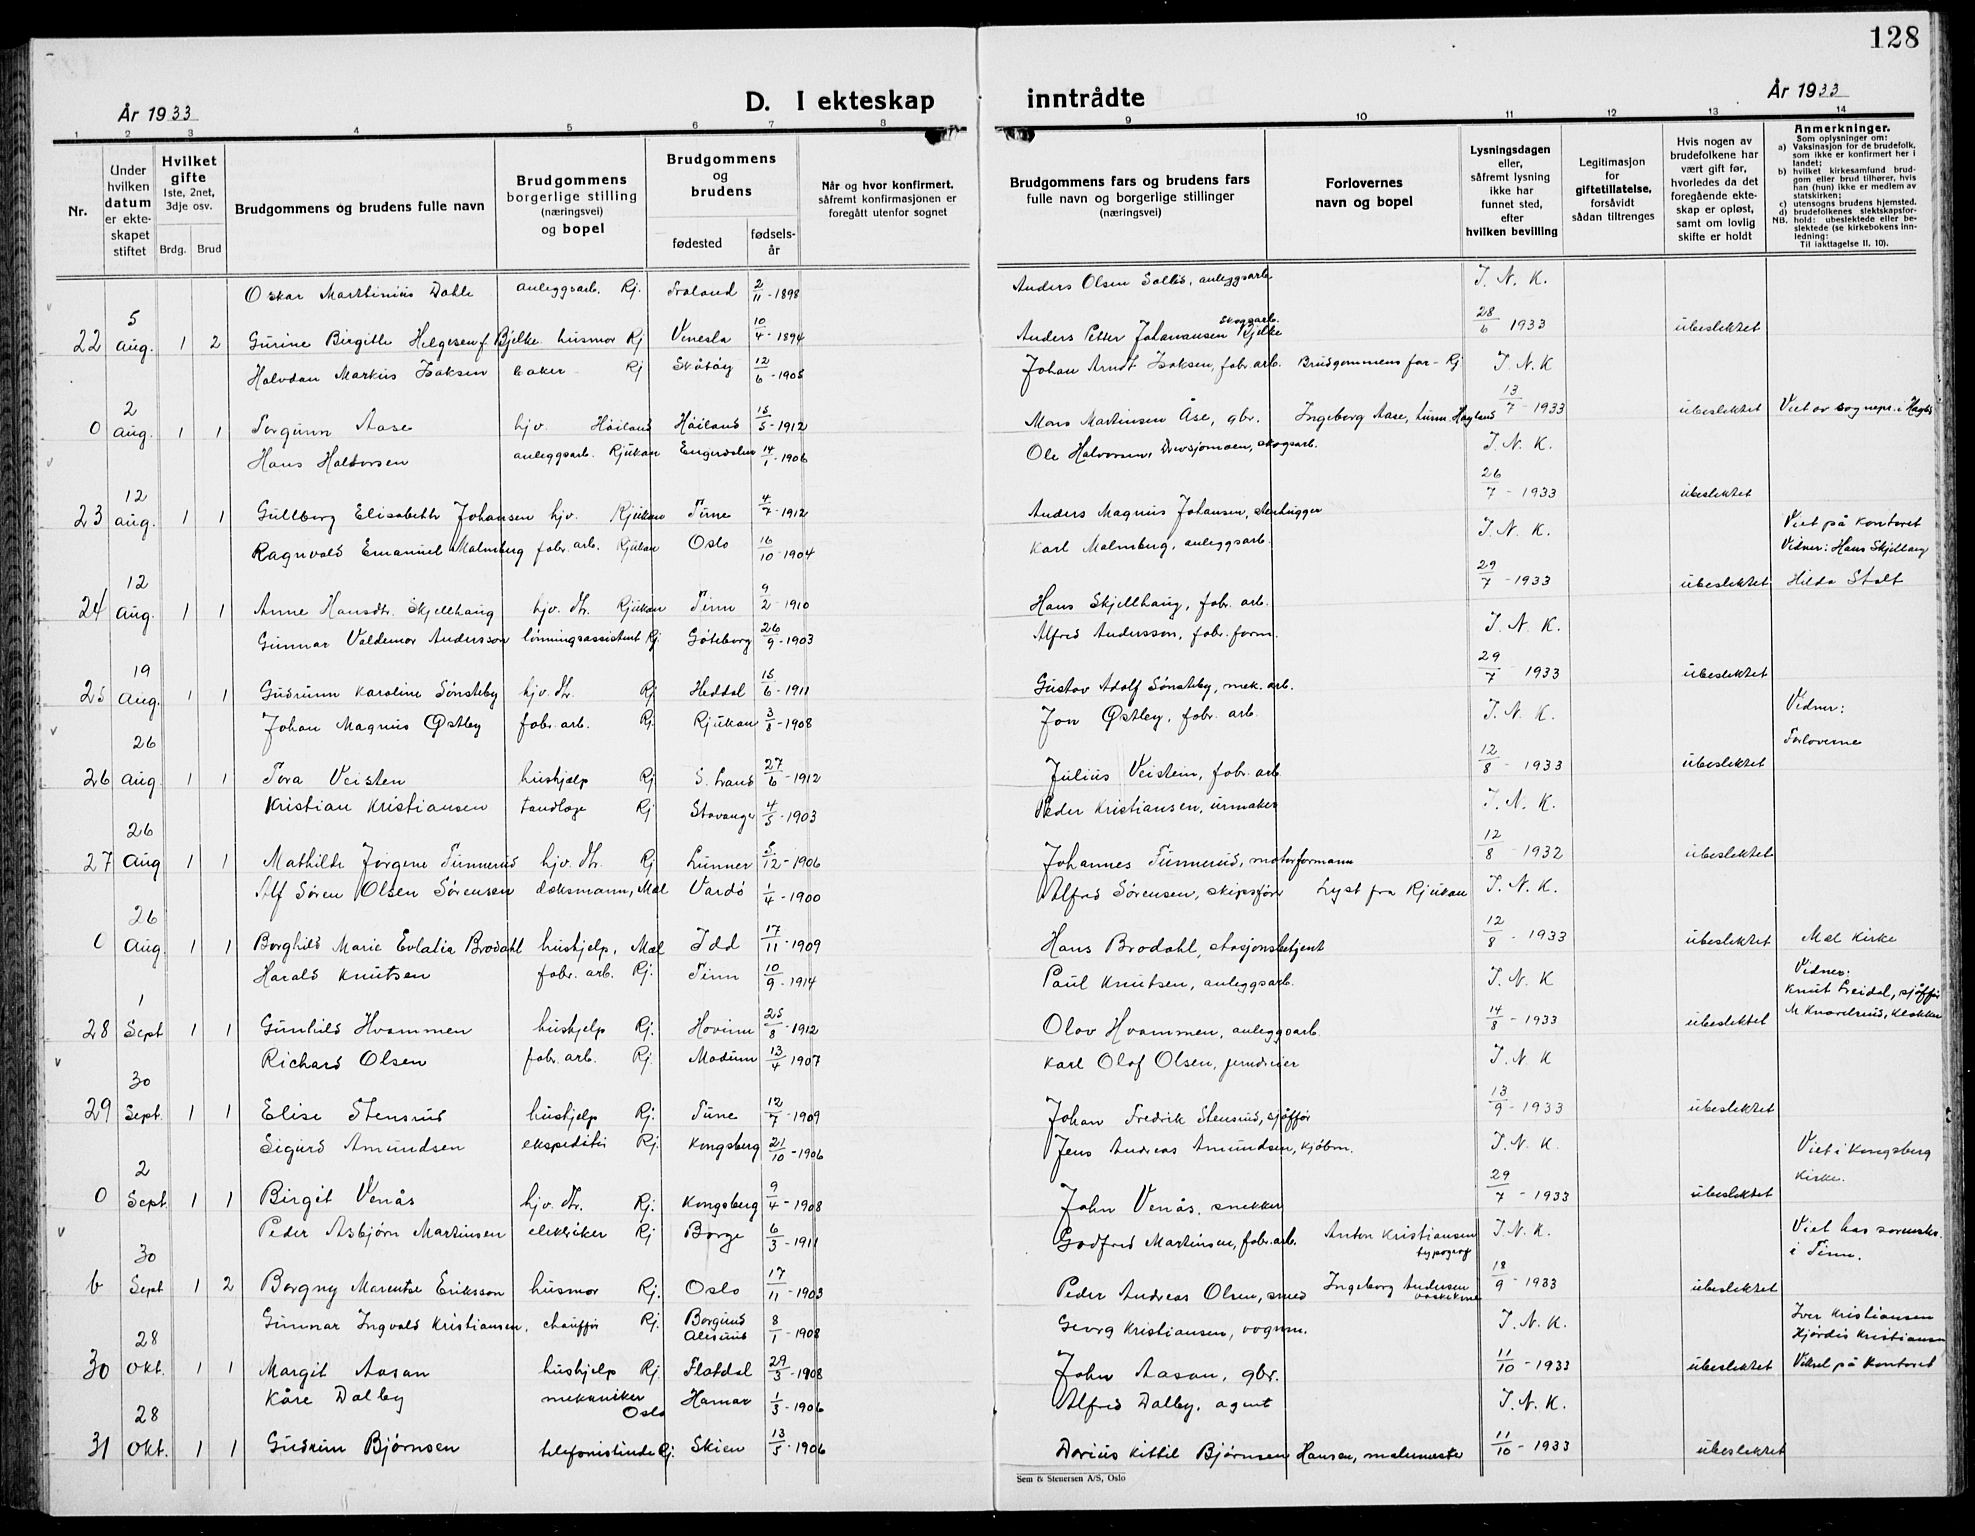 128
År 1933
D. I ekteskap inntrådte
År 1933
1 2 3 4 5 6 7 8 9 10 11 12 13 14
Nr.
Under hvilken datum er ekteskapet stiftet
Hvilket gifte 1ste, 2net, 3dje osv.
Brdg. Brud
Brudgommens og brudens fulle navn
Brudgommens borgerlige stilling (næringsvei) og bopel
Brudgommens og brudens
fødested
fødselsår
Når og hvor konfirmert, såfremt konfirmasjonen er foregått utenfor sognet
Brudgommens fars og brudens fars fulle navn og borgerlige stillinger (næringsvei)
Forlovernes navn og bopel
Lysningsdagen eller, såfremt lysning ikke har funnet sted, efter hvilken bevilling
Legitimasjon for giftetillatelse, forsåvidt sådan tiltrenges
Hvis nogen av brudefolkene har vært gift før, hvorledes da det foregående ekteskap er opløst, samt om lovlig skifte er holdt
Anmerkninger.
Som oplysninger om:
a) Vaksinasjon for de brudefolk, som ikke er konfirmert her i landet;
b) hvilket kirkesamfund brudgom eller brud tilhører, hvis han (hun) ikke er medlem av statskirken;
c) utensogns brudens hjemsted.
d) brudefolkenes slektskapsforhold: ubeslektede eller beslektede (se kirkebokens innledning:
NB. Til iakttagelse II, 10).
Oskar Marthinius Dahle anleggsarb. Rj. Froland 2/11-1898 Anders Olsen anleggsarb. I. N. K.
22 5 aug. 1 2 Gurine Birgitte Helgesen f. Bjelke husmor Rj Venesla 10/4-1894 Anders Petter Johannesen Bjelke skogsarb. 28/6 1933 ubeslektet
Halvdan Markus Isaksen baker Rj Skåtøy 12/6-1905 Johan Arndt Isaksen, fabr. arb. Brudgommens far - Rj I. N. K
0 2 aug. 1 1 Torgunn Aase hjv. Håiland Håiland 15/5-1912 Mons Martinsen Åse, gbr. Ingeborg Aase, 13/7-1933 ubeslektet Viet av sognepr. i
Hans Halvorsen anleggsarb. Rjukan Engerdalen 14/1-1906 Ole Halvorsen, Drevsjømoen, skogsarb. I. N. K.
23 12 aug. 1 1 Gullborg Elisabeth Johansen hjv. Rjukan Tune 4/7-1912 Anders Magnus Johansen, stenhugger 26/7-1933 ubeslektet
Ragnvald Emanuel Malmberg fabr. arb. Rjukan Oslo 16/10-1904 Karl Malmberg, anleggsarb. I. N. K. Viet på kontoret Vidner: Hans Skjelhaug
24 12 aug. 1 1 Anne Hansdtr. Skjellhaug hjv. dtr. Rjukan Tinn 9/2-1910 Hans Skjellhaug, fabr. arb. 29/7-1933 ubeslektet Hilda
Gunnar Valdemar Andersson lønningsassistent Rj. Göteborg 26/9-1903 Alfred Andersson, fabr. form. I. N. K.
25 19 Aug. 1 1 Gudrunn Karoline Sønsteby hjv. dtr. Rj Heddal 15/6-1911 Gustav Adolf Sønsteby, mek. arb. 29/7 1933 ubeslektet
Johan Magnus Østby fabr. arb. Rj Rjukan 3/8-1908 Jon Østby, fabr. arb. I. N. K. Vidner:
26 26 Aug. 1 1 Tora Veisten hushjelp Rj S. Land 27/6-1912 Julius Veistein, fabr. arb. 12/8-1933 ubeslektet Forloverne
Kristian Kristiansen tandlæge Rj Stavanger 4/5-1903 Peder Kristiansen, urmaker I. N. K.
27 26 Aug 1 1 Mathilde Jørgine Tunnerud hjv. dtr. Rj Lunner 5/12-1906 Johannes Tunnerud, motorformann 12/8-1932 ubeslektet
Alf Søren Olsen Sørensen doksmann, Mæl Vardø 1/4-1900 Alfred Sørensen, skipsfør. Lyst fra Rjukan I. N. K.
0 26 Aug. 1 1 Borghild Marie Evlalia Brodahl hushjelp, Mæl Idd 17/11-1909 Hans Brodahl, stasjonsbetjent 12/8-1933 ubeslektet Mæl Kirke
Harald Knutsen fabr. arb. Rj. Tinn 10/9-1914 Paul Knutsen, anleggsarb. I. N. K Vidner: Knut Freidal, sjåffør
28 1 Sept 1 1 Gunhild Hvammen hushjelp Rj. Hovinn 25/8-1912 Olav Hvammen, anleggsarb. 14/8-1933 ubeslektet klokker
Richard Olsen fabr. arb. Rj. Modum 13/4-1907 Karl Olof Olsen, I. N. K
29 30 Sept. 1 1 Elise Stensrud hushjelp Rj. Tune 12/7-1909 Johan Fredrik Stensrud, sjåffør 13/9-1933 ubeslektet
Sigurd Amundsen ekspeditør Rj. Kongsberg 21/10-1906 Jens Andreas Amundsen, kjøbm. I. N. K. Viet i Kongsberg
0 2 Sept. 1 1 Birgit Venås hjv. dtr. Rj. Kongsberg 9/4-1908 John Venås, snekker 29/7-1933 ubeslektet Kirke.
Peder Asbjørn Martinsen elektriker Rj Borge 6/3-1911 Godfred Martinsen, fabr. arb. Anton Kristiansen typograf I. N. K. Viet hos sorensk. i Tinn.
b 30 Sept 1 2 Borgny Marentse Eriksson husmor Rj. Oslo 17/11-1903 Peder Andreas Olsen, smed Ingeborg Andersen 18/9-1933 ubeslektet
Gunnar Ingvald Kristiansen, chauffør Rj. Borgund Ålesund 8/1-1908 Georg Kristiansen, vognm. I. N. K. Iver Kristiansen Hjørdis Kristiansen
30 28 Okt. 1 1 Margit Aasan hushjelp Rj. Flatdal 29/3-1908 John Aasan, gbr. 11/10-1933 ubeslektet Viksel på kontoret
Kåre Dalby mekaniker Oslo Hamar 1/3-1906 Alfred Dalby, agent I. N. K.
31 28 Okt. 1 1 Gudrun Bjørnsen telefonistinde Rj. Skien 13/5-1906 Darius Kittil Bjørnsen Hansen, malermester 11/10-1933 ubeslektet
Sem & Stenersen A/S, Oslo